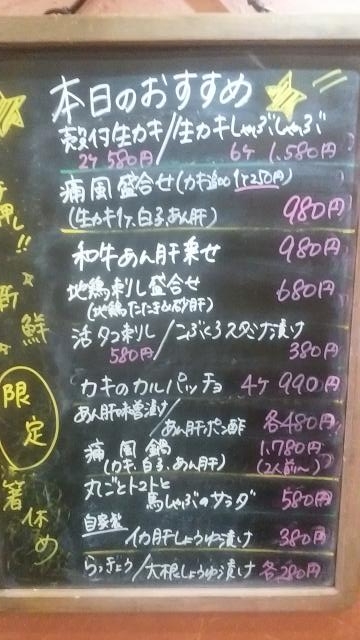 本日のおすすめ
殻付生カキ/生カキしゃぶしゃぶ
2ケ 580円 6ケ 1.580円
痛風盛合せ(カキ追加1ケ250円)
(生カキ1ケ、白子、あん肝) 980円
和牛あん肝乗せ 980円
地鶏刺し盛合せ 680円
(地鶏たたき&砂肝)
活タコ刺し/こぶくろスタミナ漬け
580円 380円
カキのカルパッチョ 4ケ 990円
あん肝味噌漬け/あん肝ポン酢 各480円
痛風鍋 1.780円
(カキ、白子、あん肝) (2人前〜)
丸ごとトマトと
馬しゃぶのサラダ 580円
自家製
イカ肝しょうゆ漬け 380円
らっきょう/大根しょうゆ漬け 各280円
押し!!
新鮮
限定
箸休め